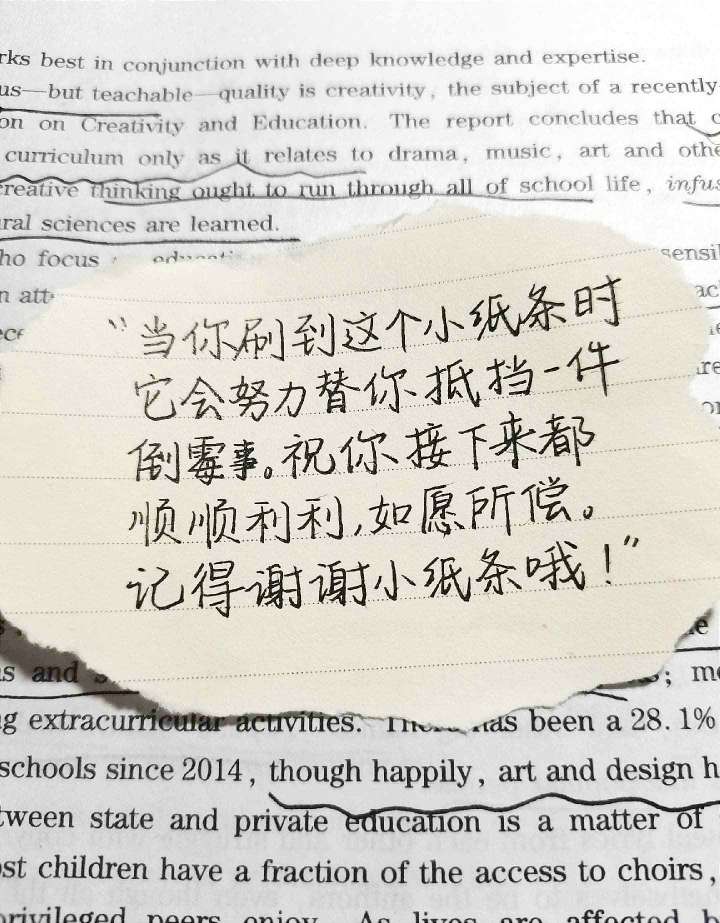 best in conjunction with deep knowledge and expertise.
but teachable—quality is creativity, the subject of a recently
on Creativity and Education. The report concludes that
curriculum only as it relates to drama, music, art and
creative thinking ought to run through all of school life,
sciences are learned.
focus
“当你刷到这个小纸条时
它会努力替你抵挡一件
倒霉事。祝你接下来都
顺顺利利,如愿所偿。
记得谢谢小纸条哦！”
and
extracurricular activities. has been a 28.1%
schools since 2014, though happily, art and design
state and private education is a matter of
children have a fraction of the access to choirs,
peers enjoy. As lives are affected